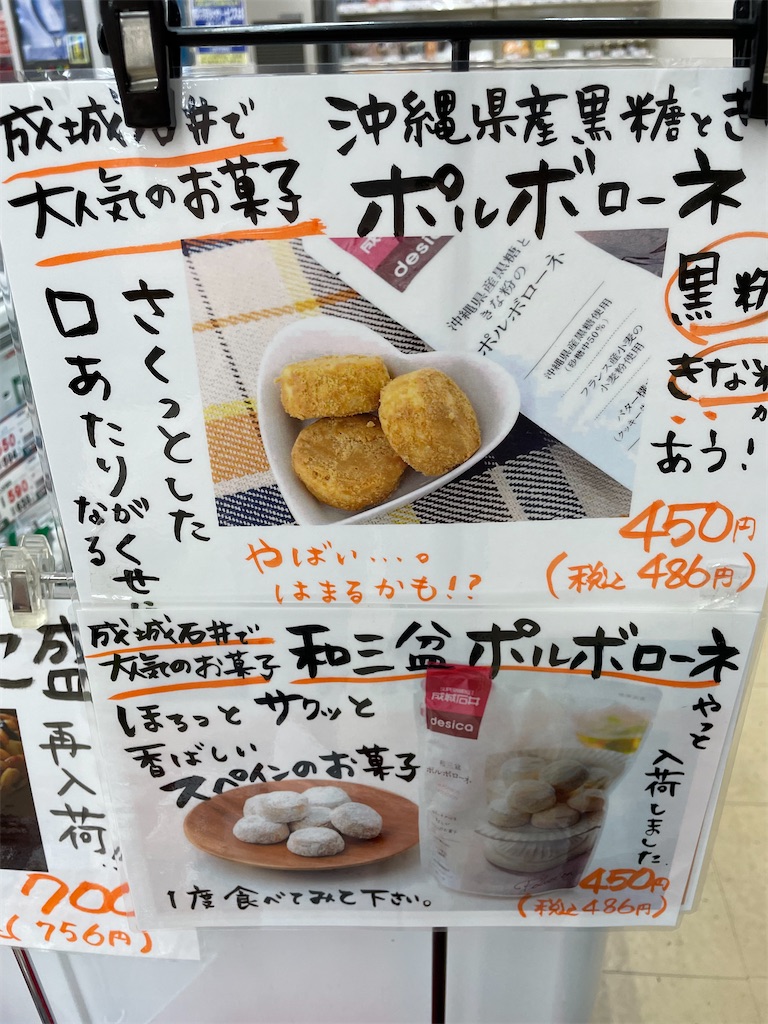 成城石井で
大人気のお菓子
沖縄県産黒糖とき
ポルボローネ
黒糖
きな粉
が
あう!
さくっとした
口あたりがくせに
なる
desica
沖縄県産黒糖と
きな粉の
ポルボローネ
沖縄県産黒糖使用
(砂糖中50%)
フランス産小麦の
小麦粉使用
やばい…。
はまるかも!?
450円
(税込486円)
成城石井で
大人気のお菓子
和三盆 ポルボローネ
ほろっと サクッと
香ばしい
スペインのお菓子
やっと
入荷しました
成城石井
desica
和三盆
ポルボローネ
1度食べてみて下さい。
450円
(税込486円)
盛
再入荷!!
700
(756円)
590